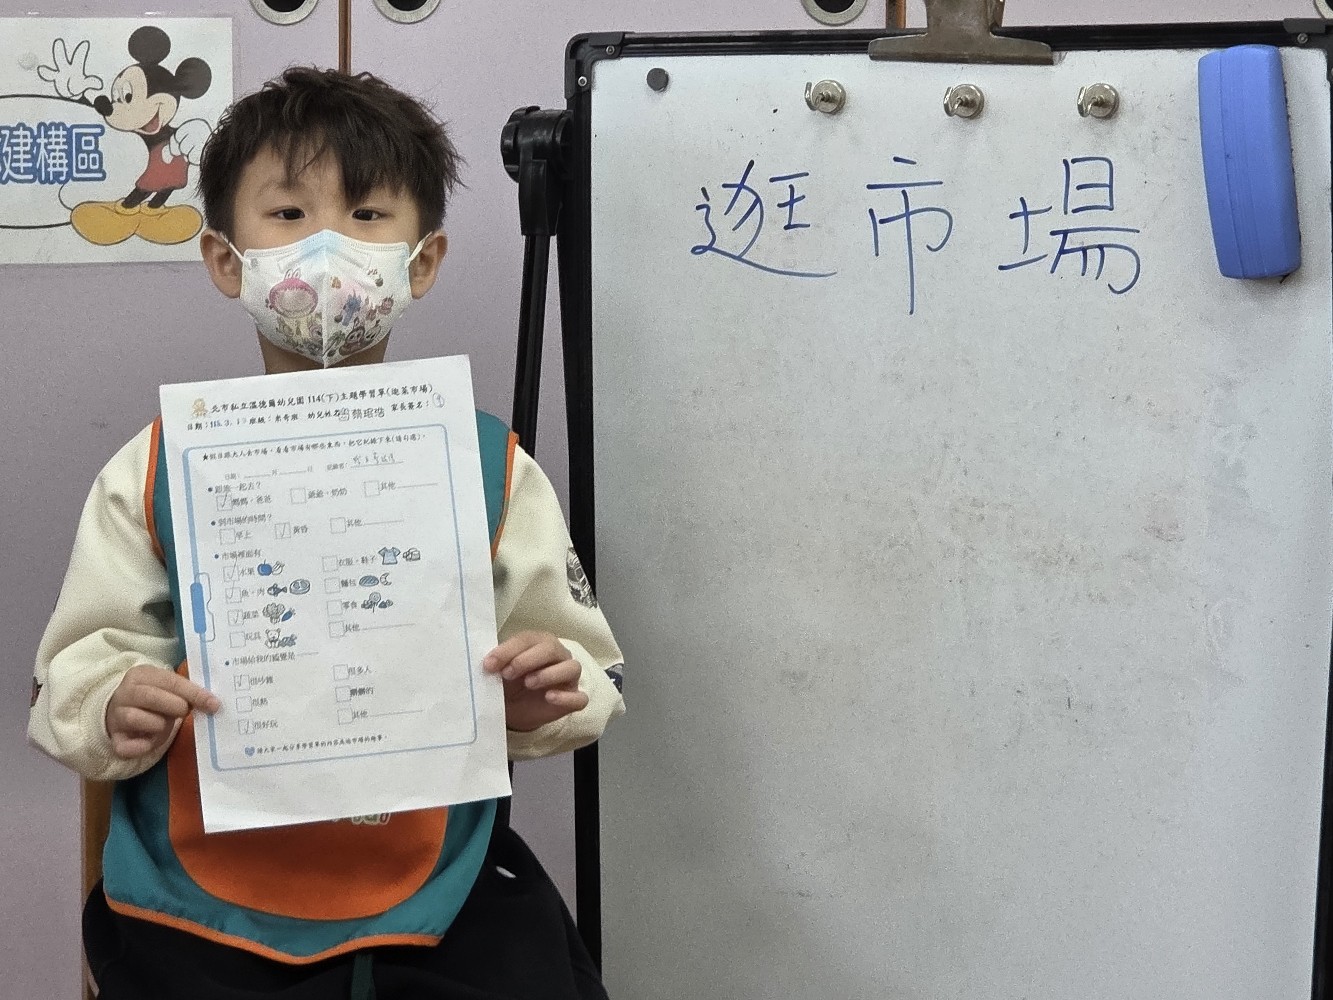 建構區
逛市場
北市私立溫德爾幼兒園114(下)主題學習單(逛菜市場)
日期:115.3.1 班級:米奇班 幼兒姓名: 蔡珺浩 家長簽名:
★假日跟大人去市場,看看市場有哪些東西,把它記錄下來(請勾選)。
日期:____月____日 記錄者:
●跟誰一起去?
✓媽媽、爸爸 □爺爺、奶奶 □其他
●到市場的時間?
□早上 ✓黃昏 □其他
●市場裡面有
✓水果 □衣服、鞋子
✓魚、肉 □麵包
✓蔬菜 □零食
□玩具 □其他
●市場給我的感覺是
✓很吵雜 □很多人
□很熱 □髒髒的
✓很好玩 □其他
請大家一起分享學習單的內容及逛市場的趣事。